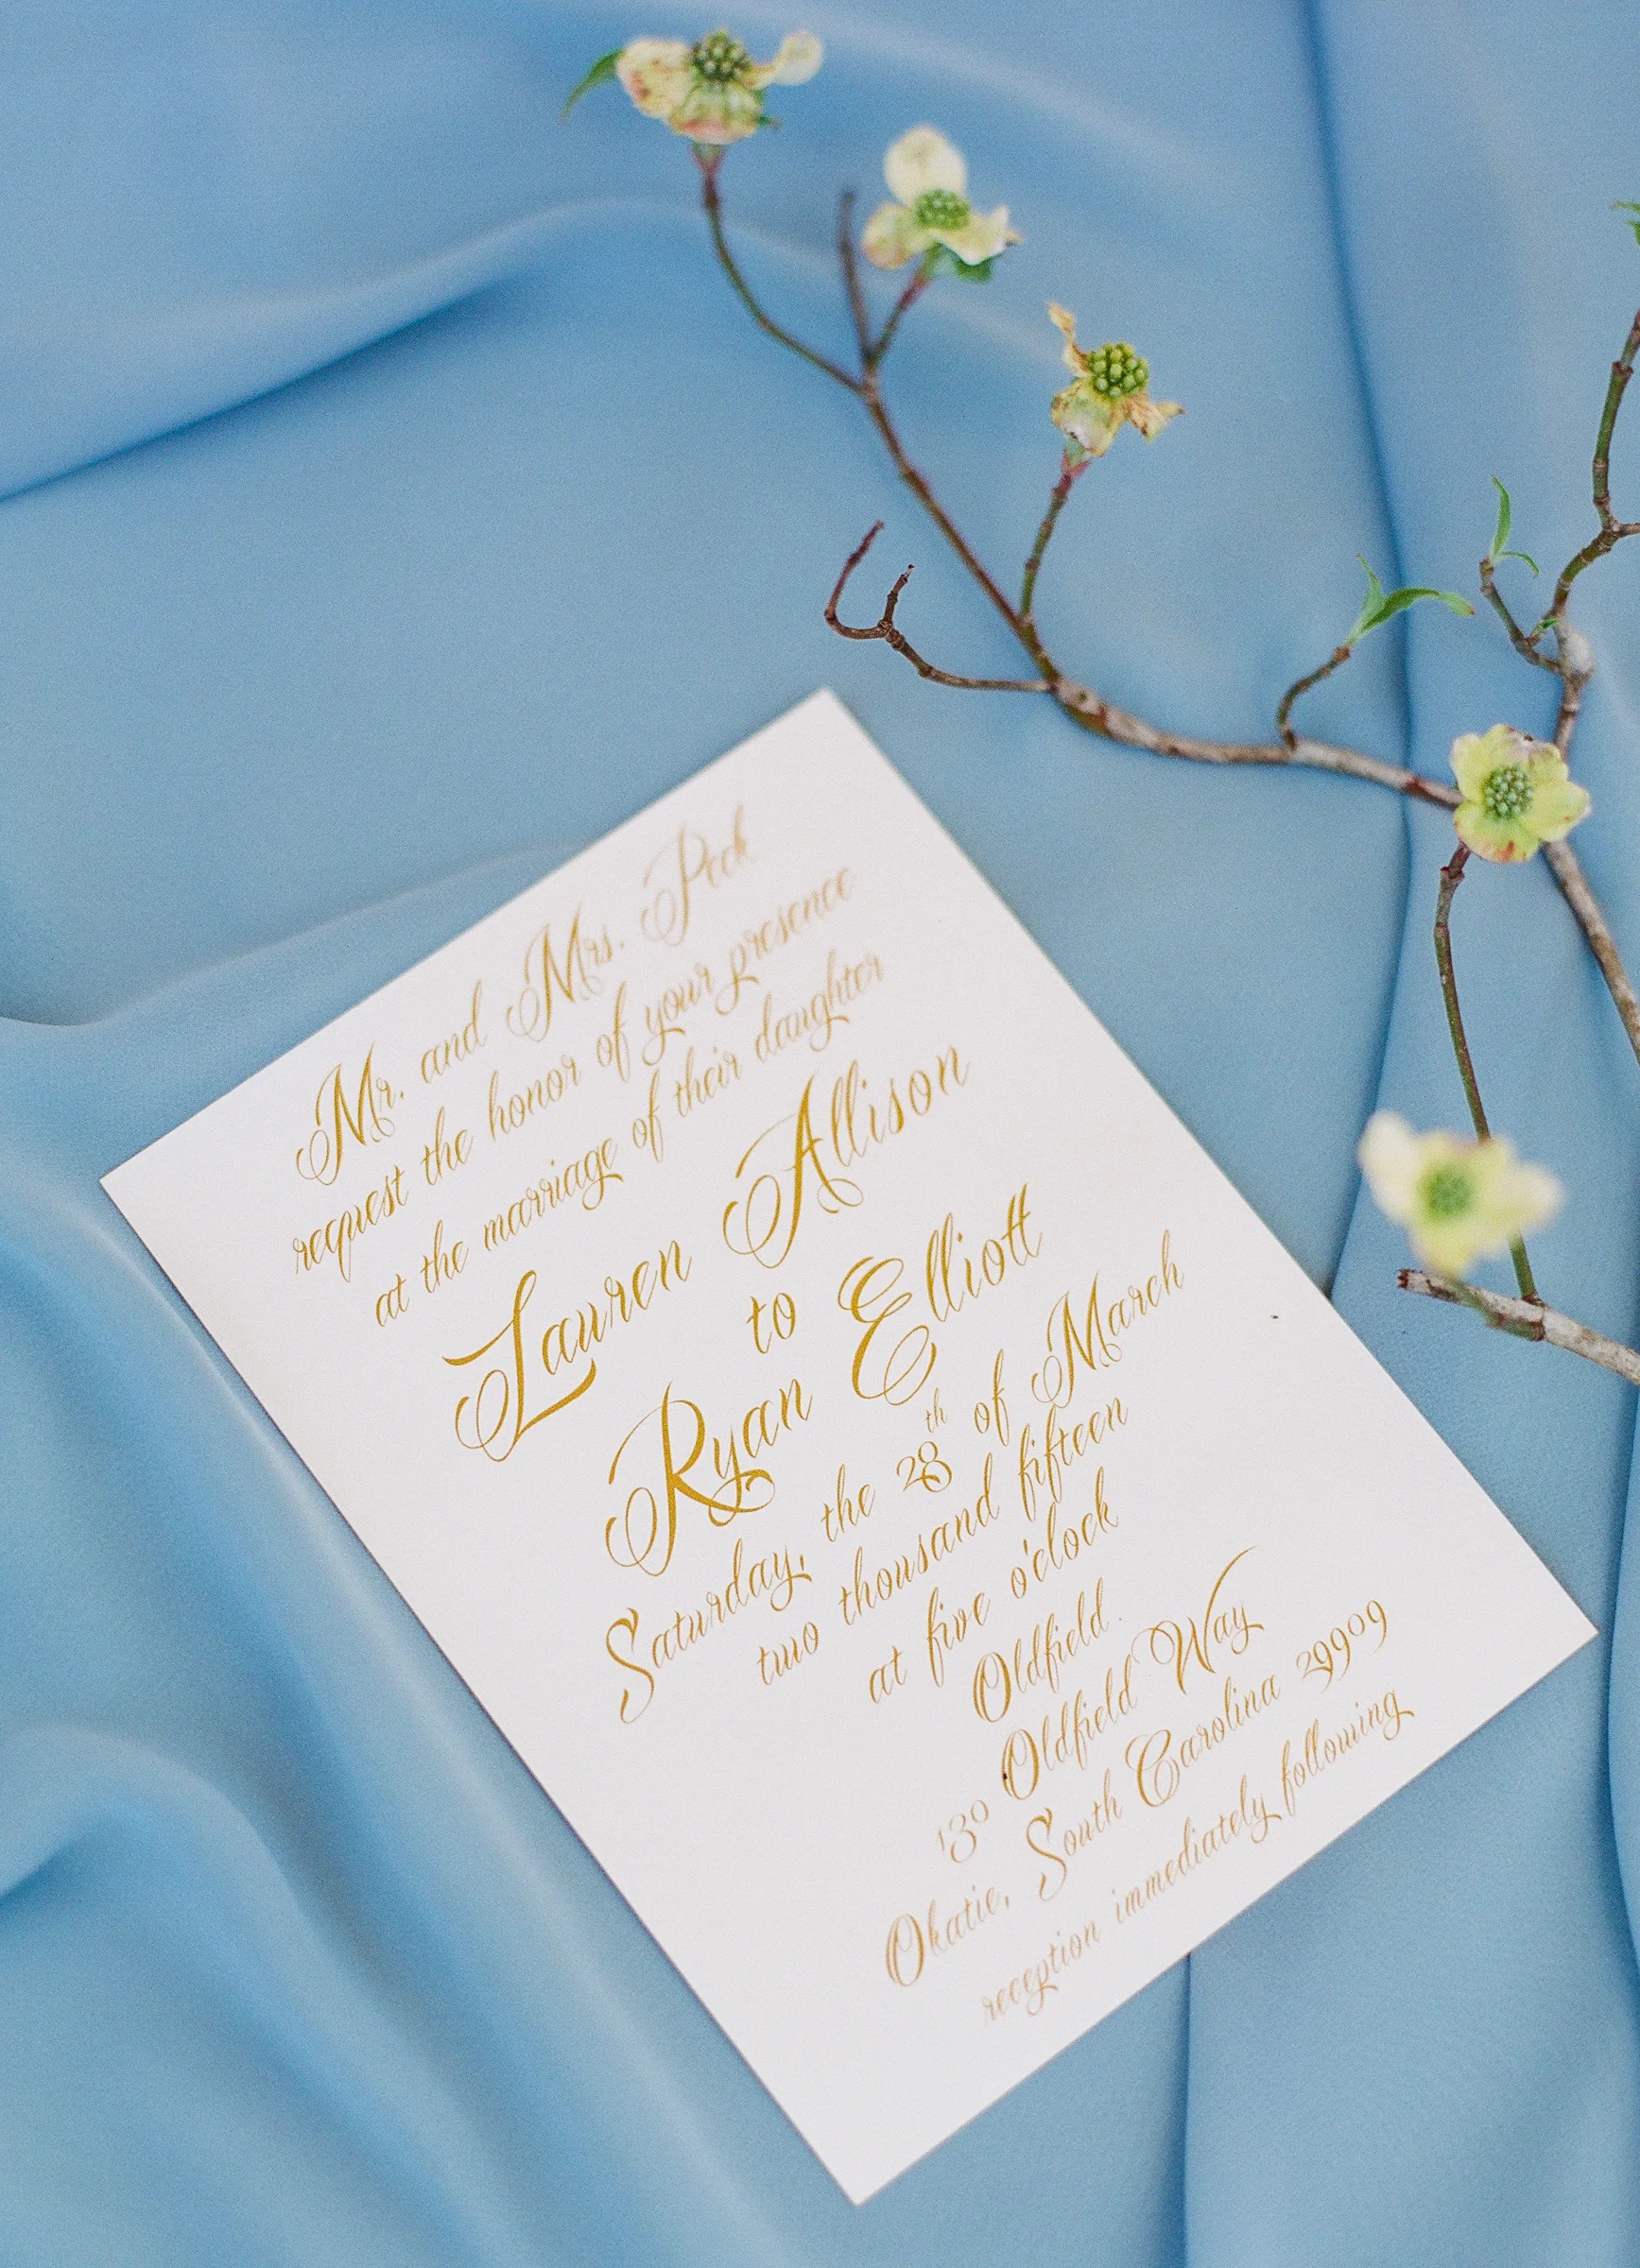 Mr. and Mrs. Peck
request the honor of your presence
at the marriage of their daughter
Lauren Allison
to
Ryan Elliott
Saturday, the 28th of March
two thousand fifteen
at five o'clock
Oldfield
130 Oldfield Way
Okatie, South Carolina 29909
reception immediately following